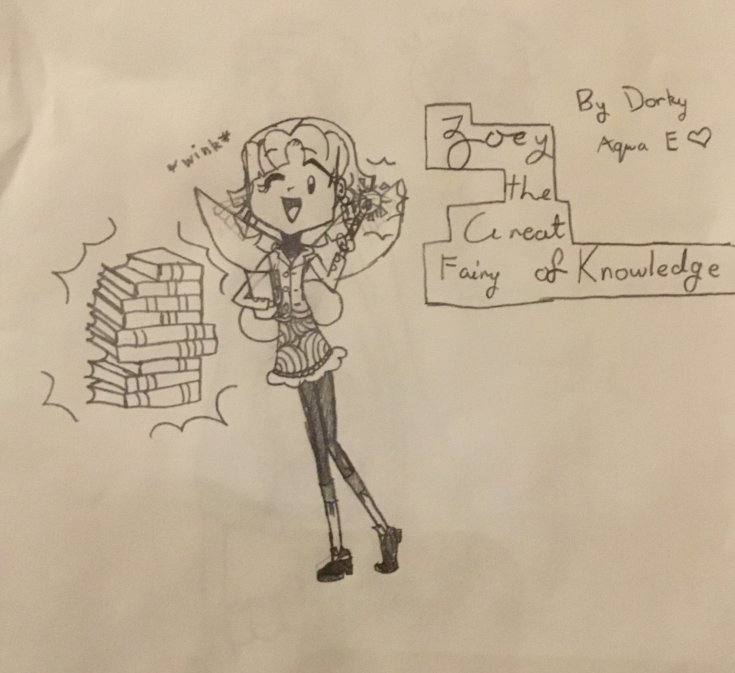 *wink*
Zoey
the
Great
Fairy of Knowledge
By Dorky
Aqua E♡